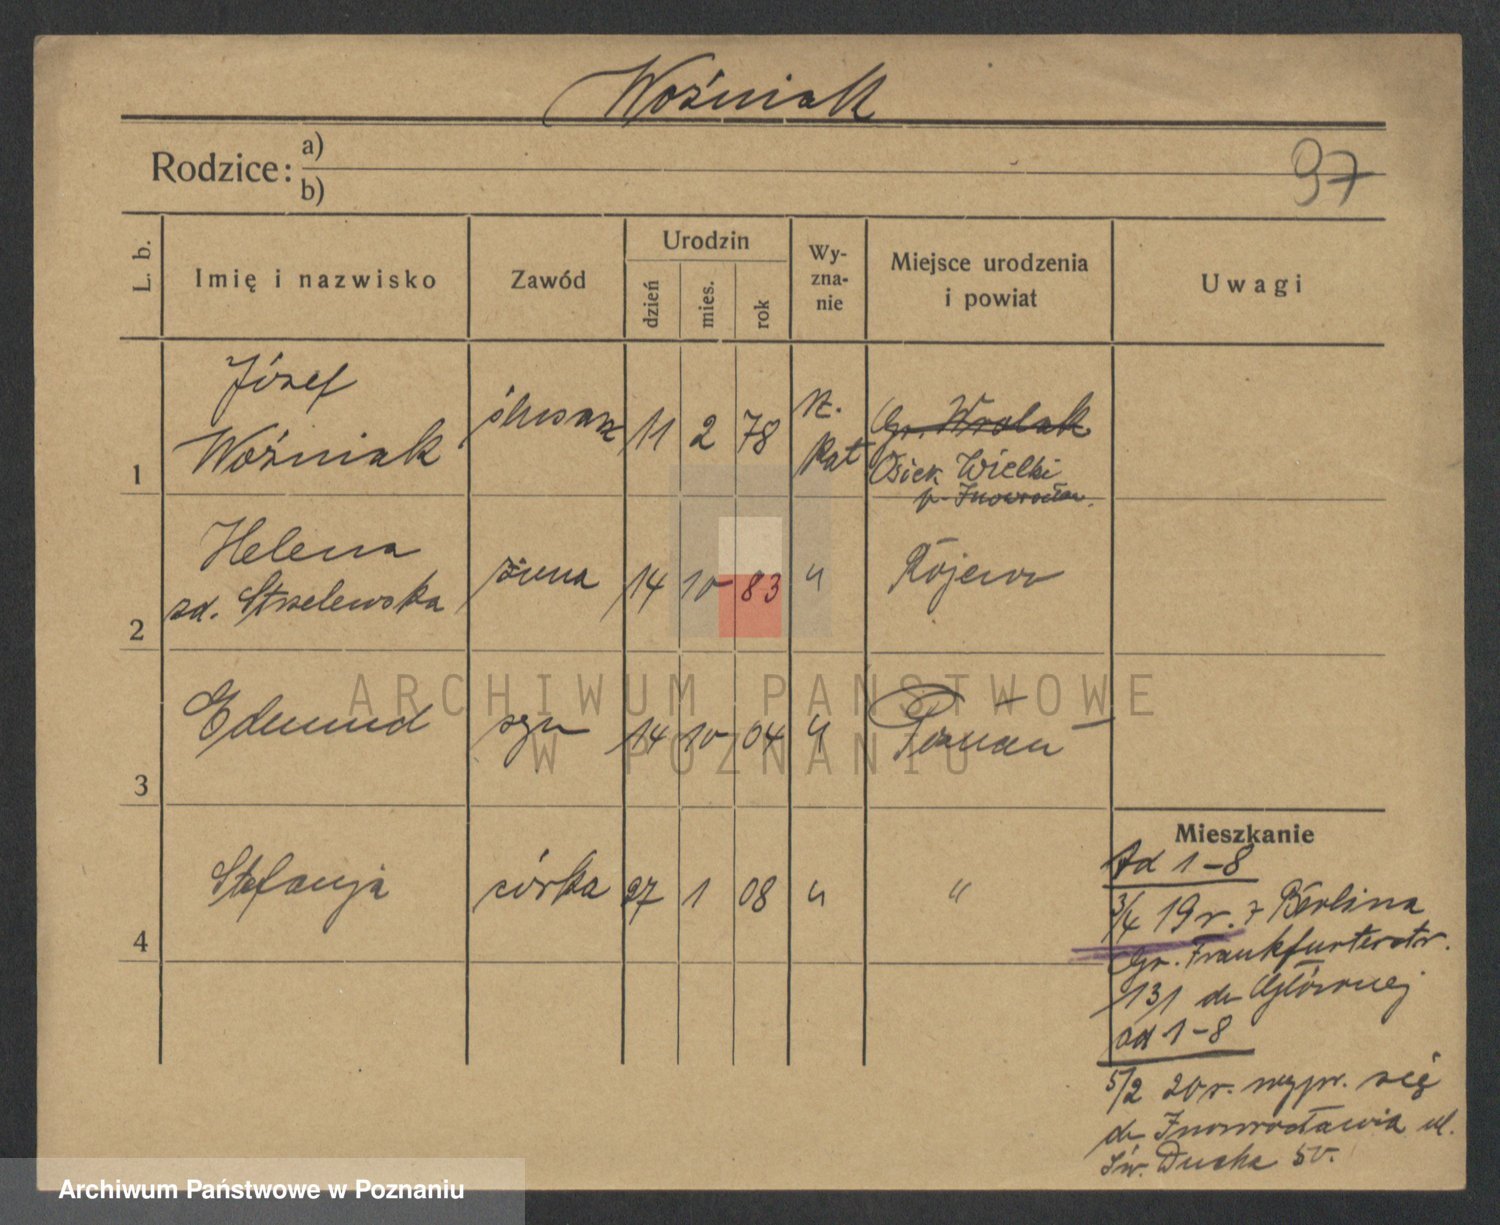 Woźniak
Rodzice:
a)
b)
97
L. b.
Imię i nazwisko
Zawód
Urodzin
dzień
mies.
rok
Wy-
zna-
nie
Miejsce urodzenia
i powiat
Uwagi
1
Józef
Woźniak
ślusarz
11
2
78
rz.
kat
Gr. Wrolak
Osiek Wielki
p. Inowrocław.
2
Helena
zd. Strzelewska
żona
14
10
83
"
Rojewo
3
Edmund
syn
14
10
04
"
Poznań
4
Stefanja
córka
27
1
08
"
"
Mieszkanie
Ad 1-8
3/4 19 r. z Berlina
Gr. Frankfurterstr.
131 do Głównej
ad 1-8
5/2 20 r. wypr. się
do Inowrocławia ul.
Św. Ducha 50.
ARCHIWUM PAŃSTWOWE
W POZNANIU
Archiwum Państwowe w Poznaniu